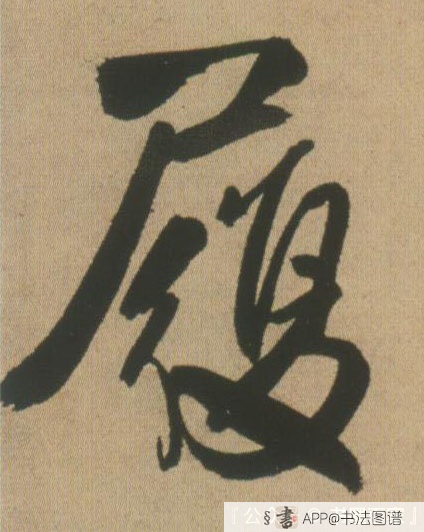 履
§書 APP@书法图谱